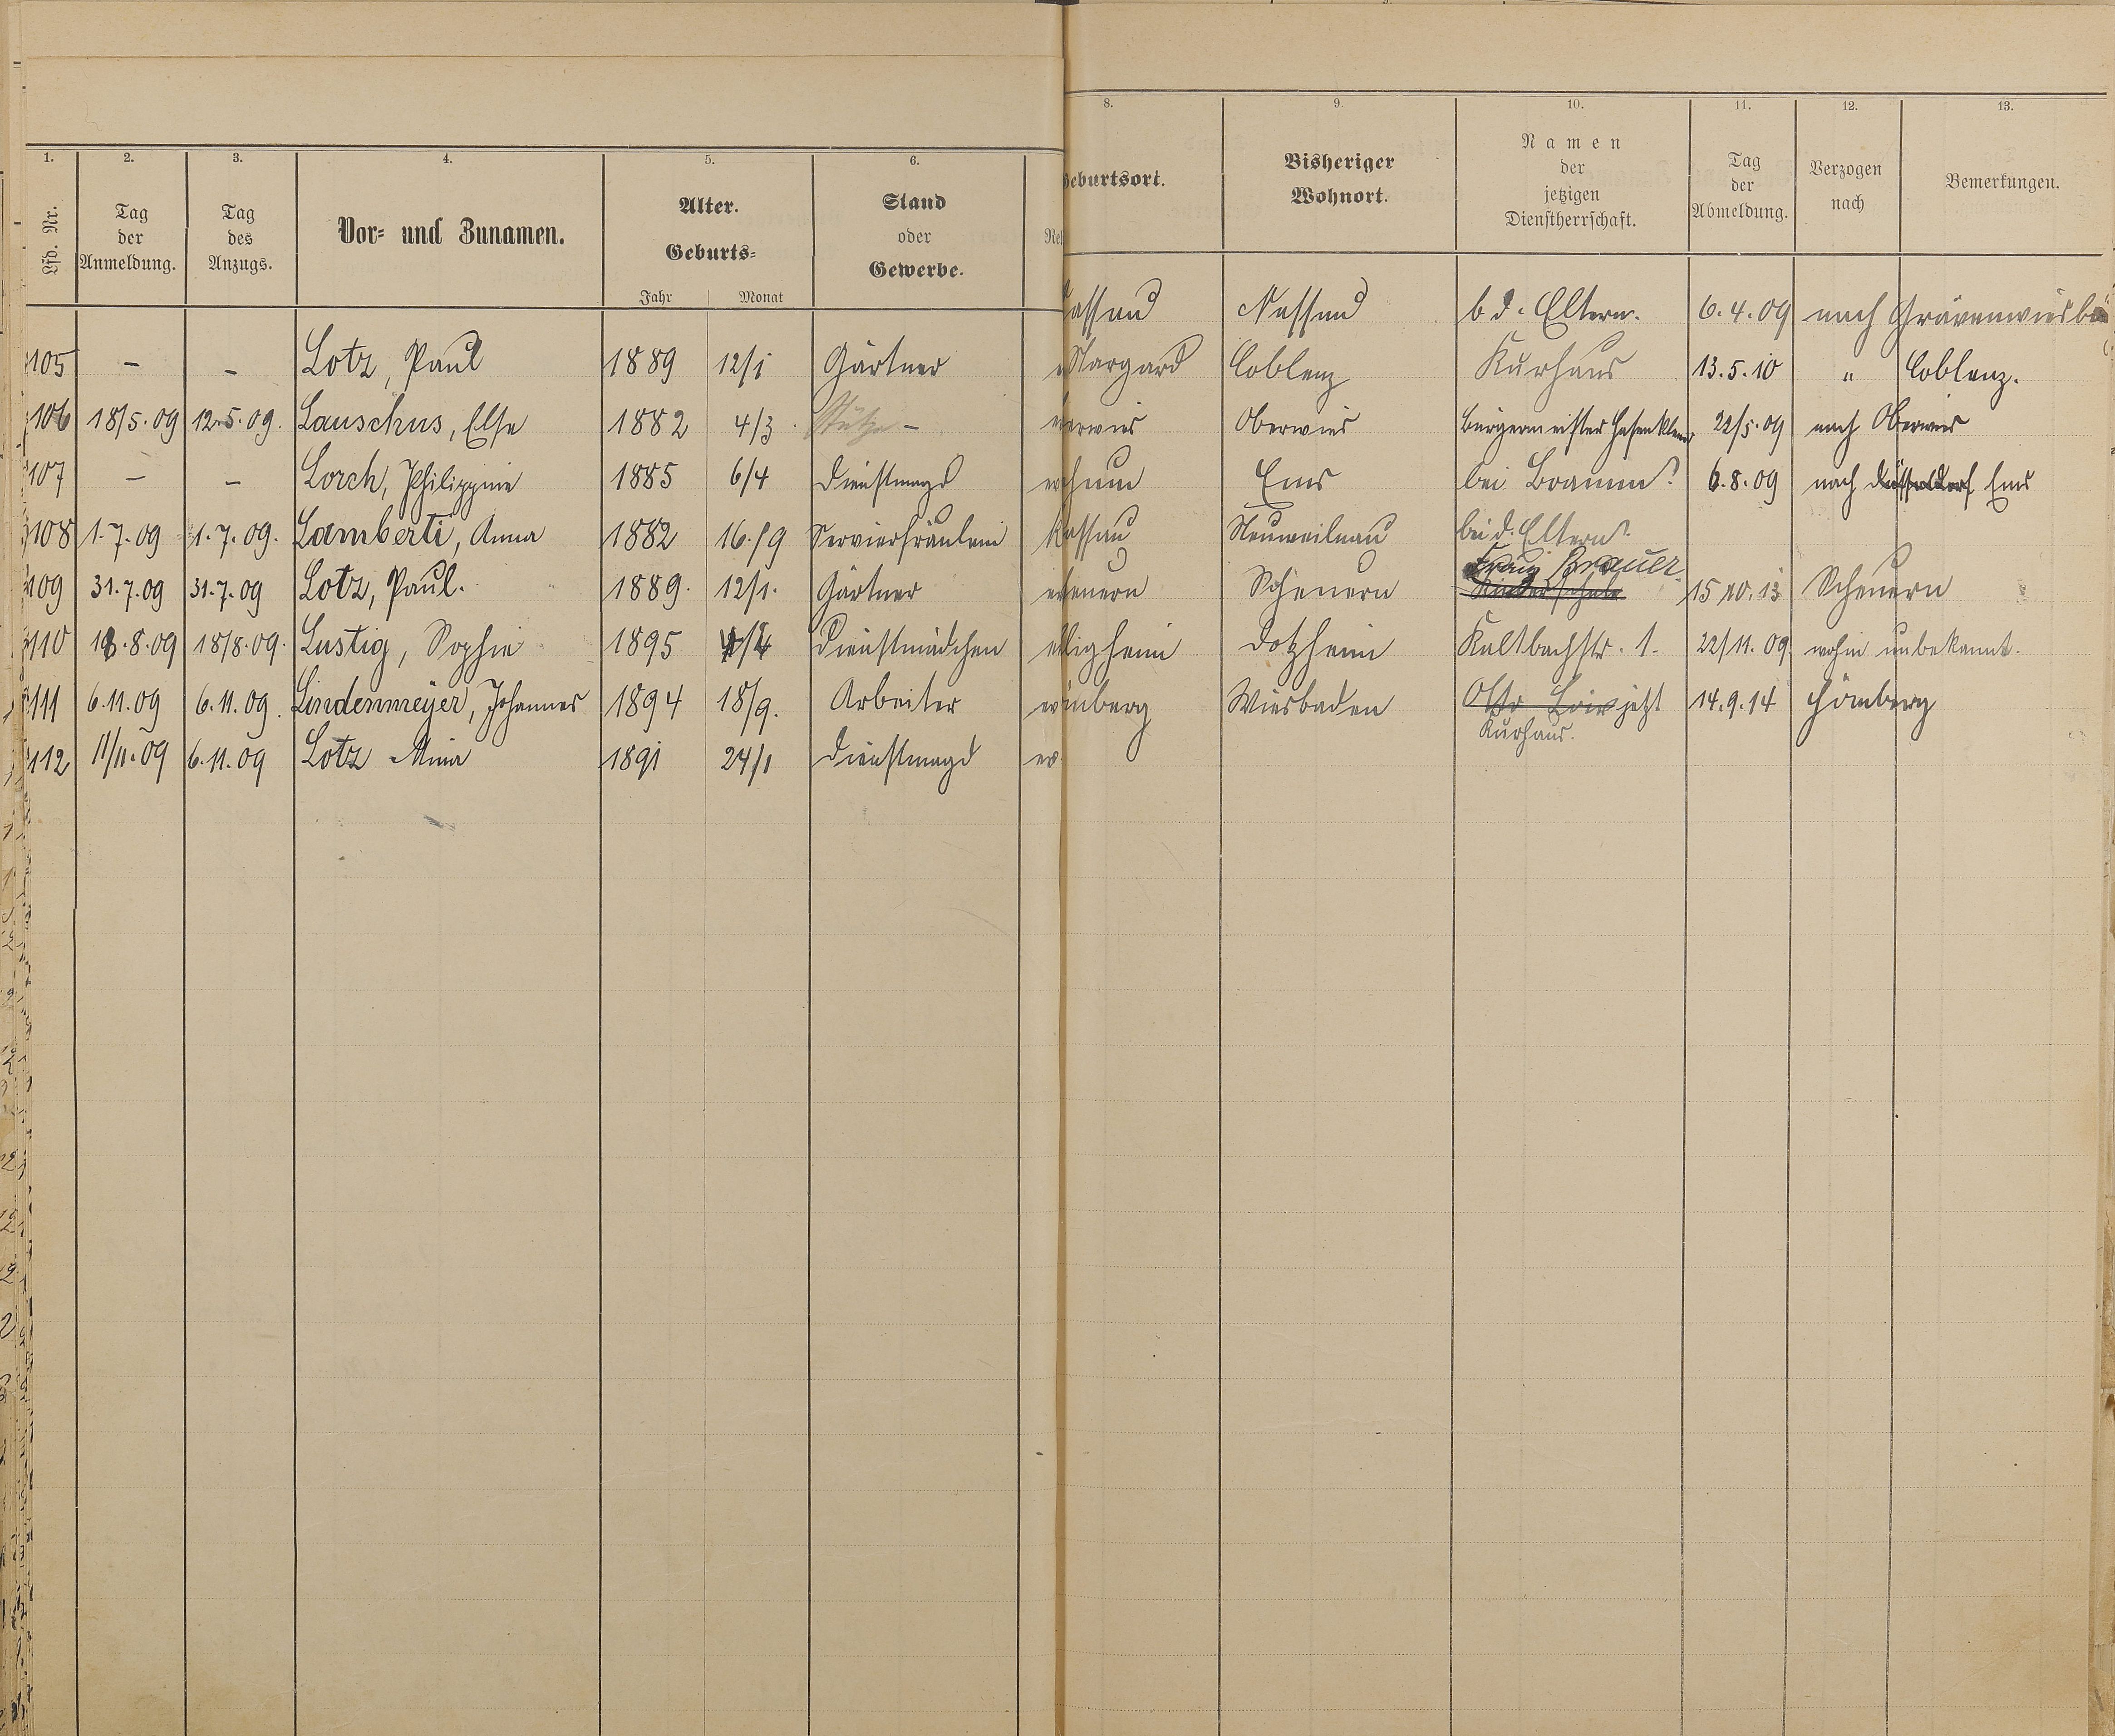 1. 2. 3. 4. 5. 6. 8. 9. 10. 11. 12. 13.
Lfd. Nr. Tag der Anmeldung. Tag des Anzugs. Vor- und Zunamen. Alter. Geburts- Jahr Monat Stand oder Gewerbe. Geburtsort. Bisheriger Wohnort. Namen der jetzigen Dienstherrschaft. Tag der Abmeldung. Verzogen nach Bemerkungen.
105 – – Lotz, Paul 1889 12/1 Gärtner
106 18/5.09 12.5.09. Lauschus, Else 1882 4/3 Stütze –
107 – – Lorch, Philippine 1885 6/4 Dienstmagd
108 1.7.09 1.7.09. Lamberti, Anna 1882 16./9 Servierfräulein
109 31.7.09 31.7.09 Lotz, Paul. 1889. 12/1. Gärtner
110 18.8.09 18/8.09. Lustig, Sophie 1895 /4 Dienstmädchen
111 6.11.09 6.11.09. Lindenmeyer, Johannes 1894 18/9. Arbeiter
112 11/11.09 6.11.09 Lotz Mina 1891 24/1 Dienstmagd
assau Nassau b. d. Eltern. 6.4.09 nach Grävenwiesb
Stargard Coblenz Kurhaus 13.5.10 " Coblenz.
erwies Oberwies Bürgermeister Hasenklever 22/5.09 nach Oberwies
Ems bei Bramm 6.8.09 nach Düsseldorf Ems
assau Neuweilnau bei d. Eltern
Frau Brauer
euern Scheuern Kinderschule 15.10.13 Scheuern
ligheim Dotzheim Kaltbachstr. 1. 22/11.09. wohin unbekannt.
ömberg Wiesbaden jetzt 14.9.14 Hömberg
Kurhaus.